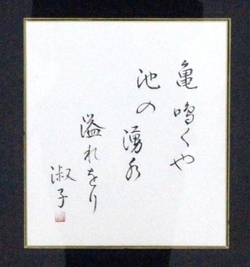 亀鳴くや
池の湧水
溢れをり
淑子